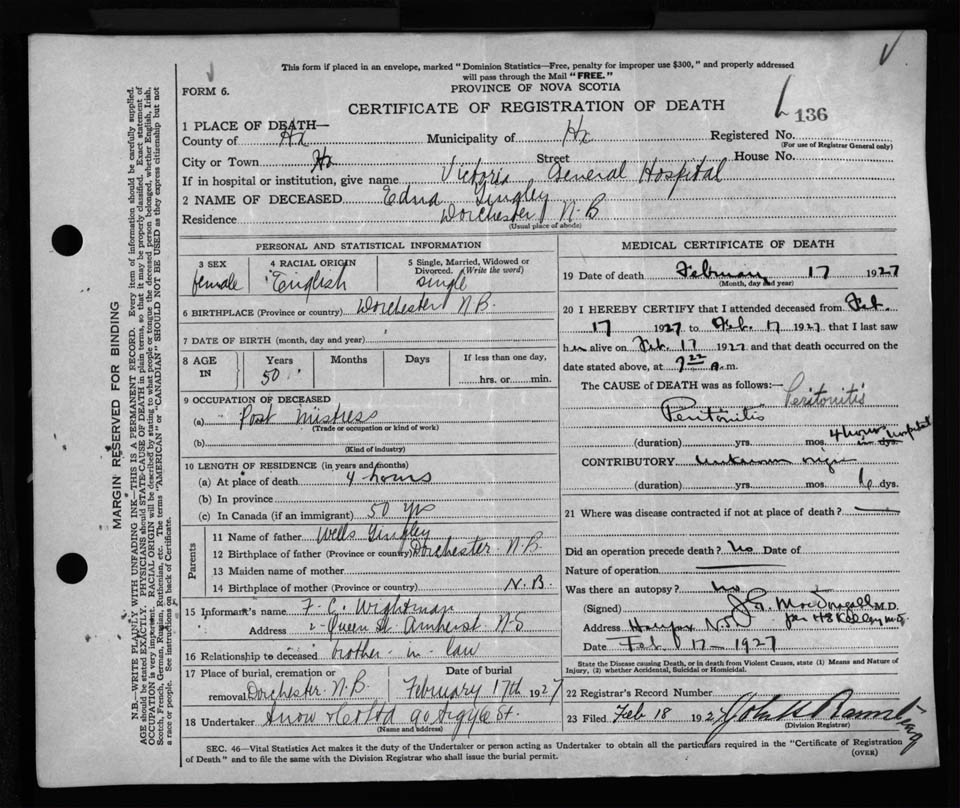 This form if placed in an envelope, marked "Dominion Statistics—Free, penalty for improper use $300," and properly addressed
will pass through the Mail "FREE."
FORM 6.
PROVINCE OF NOVA SCOTIA
CERTIFICATE OF REGISTRATION OF DEATH
136
1 PLACE OF DEATH—
County of Hx Municipality of Hx Registered No.
(For use of Registrar General only)
City or Town Hx Street House No.
If in hospital or institution, give name Victoria General Hospital
2 NAME OF DECEASED Edna Tingley
Residence Dorchester N.B
(Usual place of abode)
PERSONAL AND STATISTICAL INFORMATION
3 SEX female
4 RACIAL ORIGIN English
5 Single, Married, Widowed or Divorced. (Write the word) single
6 BIRTHPLACE (Province or country) Dorchester N.B.
7 DATE OF BIRTH (month, day and year)
8 AGE IN Years 50 Months Days If less than one day, hrs. or min.
9 OCCUPATION OF DECEASED
(a) Post Mistress
(Trade or occupation or kind of work)
(b)
(Kind of industry)
10 LENGTH OF RESIDENCE (in years and months)
(a) At place of death 4 hours
(b) In province
(c) In Canada (if an immigrant) 50 yrs
Parents
11 Name of father Wells Tingley
12 Birthplace of father (Province or country) Dorchester N.B.
13 Maiden name of mother
14 Birthplace of mother (Province or country) N.B.
15 Informant's name F. C. Wightman
Address 2 Queen St. Amherst N-S
16 Relationship to deceased brother-in-law
17 Place of burial, cremation or removal Dorchester N.B. Date of burial February 17th 1927
18 Undertaker Snow & Co Ltd 90 Argyle St.
(Name and address)
MEDICAL CERTIFICATE OF DEATH
19 Date of death February 17 1927
(Month, day and year)
20 I HEREBY CERTIFY that I attended deceased from Feb.
17 1927 to Feb. 17 1927 that I last saw
her alive on Feb. 17 1927 and that death occurred on the
date stated above, at 7 22 a.m.
The CAUSE OF DEATH was as follows:— Peritonitis
Peritonitis
(duration) yrs. mos. 4 hours in hospital dys.
CONTRIBUTORY unknown origin
(duration) yrs. mos. 6 dys.
21 Where was disease contracted if not at place of death?
Did an operation precede death? no Date of
Nature of operation
Was there an autopsy? no
(Signed) MacDougall M.D.
Address Halifax N.S.
Date Feb 17 - 1927
State the Disease causing Death, or in death from Violent Causes, state (1) Means and Nature of
Injury, (2) whether Accidental, Suicidal or Homicidal.
22 Registrar's Record Number
23 Filed Feb 18 1927
(Division Registrar)
SEC. 46—Vital Statistics Act makes it the duty of the Undertaker or person acting as Undertaker to obtain all the particulars required in the "Certificate of Registration
of Death" and to file the same with the Division Registrar who shall issue the burial permit. (OVER)
MARGIN RESERVED FOR BINDING
N.B.—WRITE PLAINLY WITH UNFADING INK—THIS IS A PERMANENT RECORD. Every item of information should be carefully supplied.
AGE should be stated EXACTLY. PHYSICIANS should STATE CAUSE OF DEATH in plain terms, so that it may be properly classified. Exact statement of
OCCUPATION is very important. RACIAL ORIGIN will be described by stating to what people or tongue the deceased person belonged, whether English, Irish,
Scotch, French, German, Russian, Ruthenian, etc. The terms "AMERICAN" or "CANADIAN" SHOULD NOT BE USED as they express citizenship but not
a race or people. See instructions on back of Certificate.